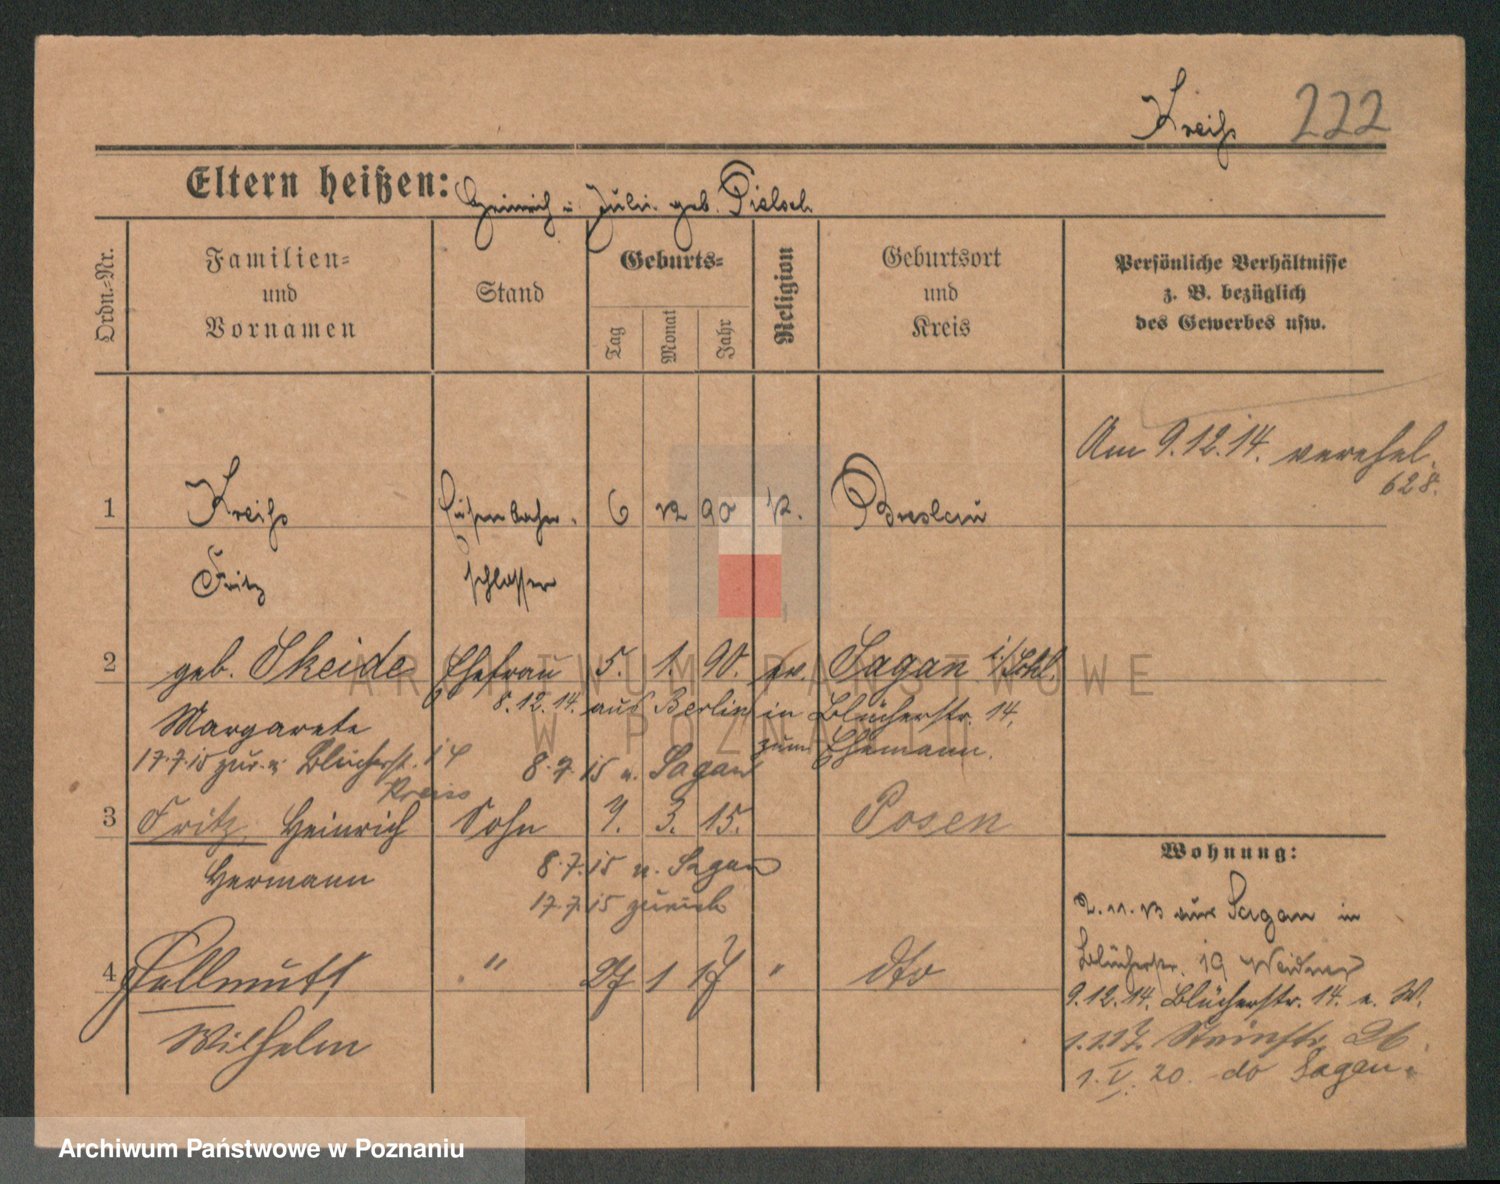 Kreiss 222
Eltern heißen: Heinrich u. Julie geb. Pielsch
Ordn.-Nr.
Familien-
und
Vornamen
Stand
Geburts-
Tag
Monat
Jahr
Religion
Geburtsort
und
Kreis
Persönliche Verhältnisse
z. B. bezüglich
des Gewerbes usw.
Am 9.12.14. verehel.
628.
1 Kreiss Eisenbahn- 6 12 90 k. Breslau
Fritz schlosser
2 geb. Skeide Ehefrau 5. 1. 90. ev. Sagan i/Schl.
8.12.14. aus Berlin in Blücherstr. 14,
Margarete
zum Ehemann.
17.7.15 zur. n. Blücherstr. 14
8.7.15 n. Sagan
Kreiss
3 Fritz Heinrich Sohn 7. 3. 15. Posen
Hermann
8.7.15 n. Sagan
17.7.15 zurück
4 Hellmuth " 27 1 17 " dto
Wilhelm
Wohnung:
2.11.13 aus Sagan in
Blücherstr. 19 Weidner
9.12.14. Blücherstr. 14. e. W.
1.1.17. Steinstr. 26.
1.V.20. do Sagan.
ARCHIWUM PAŃSTWOWE
W POZNANIU
Archiwum Państwowe w Poznaniu